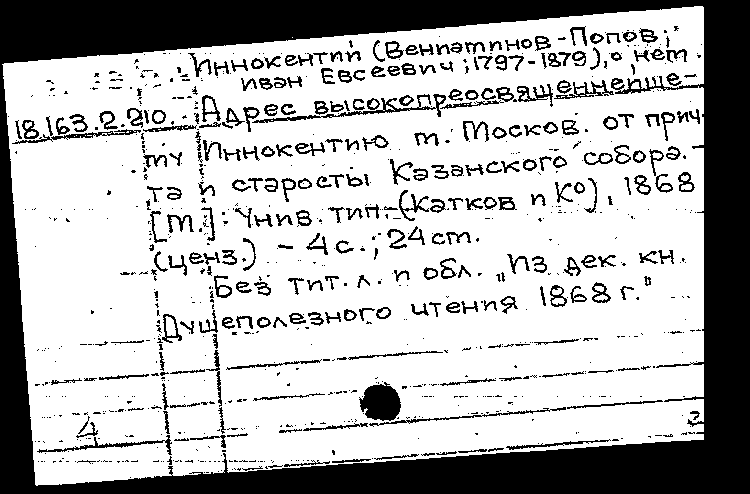 Иннокентий (Вениаминов-Попов;
Иван Евсеевич; 1797-1879), о нем.
18.163.2.210. Адрес высокопреосвященнейше-
му Иннокентию м. Москов. от прич-
та и старосты Казанского собора. -
[М.]: Унив. тип. (Катков и К°), 1868
(ценз.) - 4 с.; 24 см.
Без тит. л. и обл. „Из дек. кн.
Душеполезного чтения 1868 г."
4